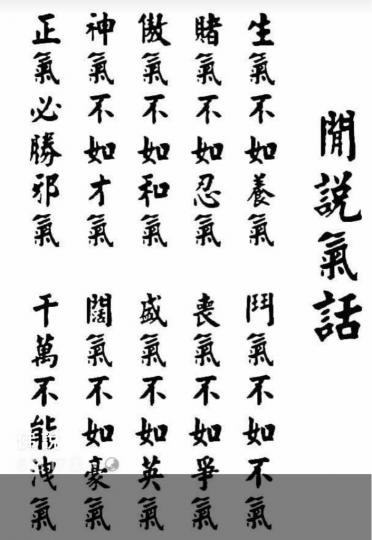 閒說氣話
生氣不如養氣 鬥氣不如不氣
賭氣不如忍氣 喪氣不如爭氣
傲氣不如和氣 盛氣不如英氣
神氣不如才氣 闊氣不如豪氣
正氣必勝邪氣 千萬不能洩氣